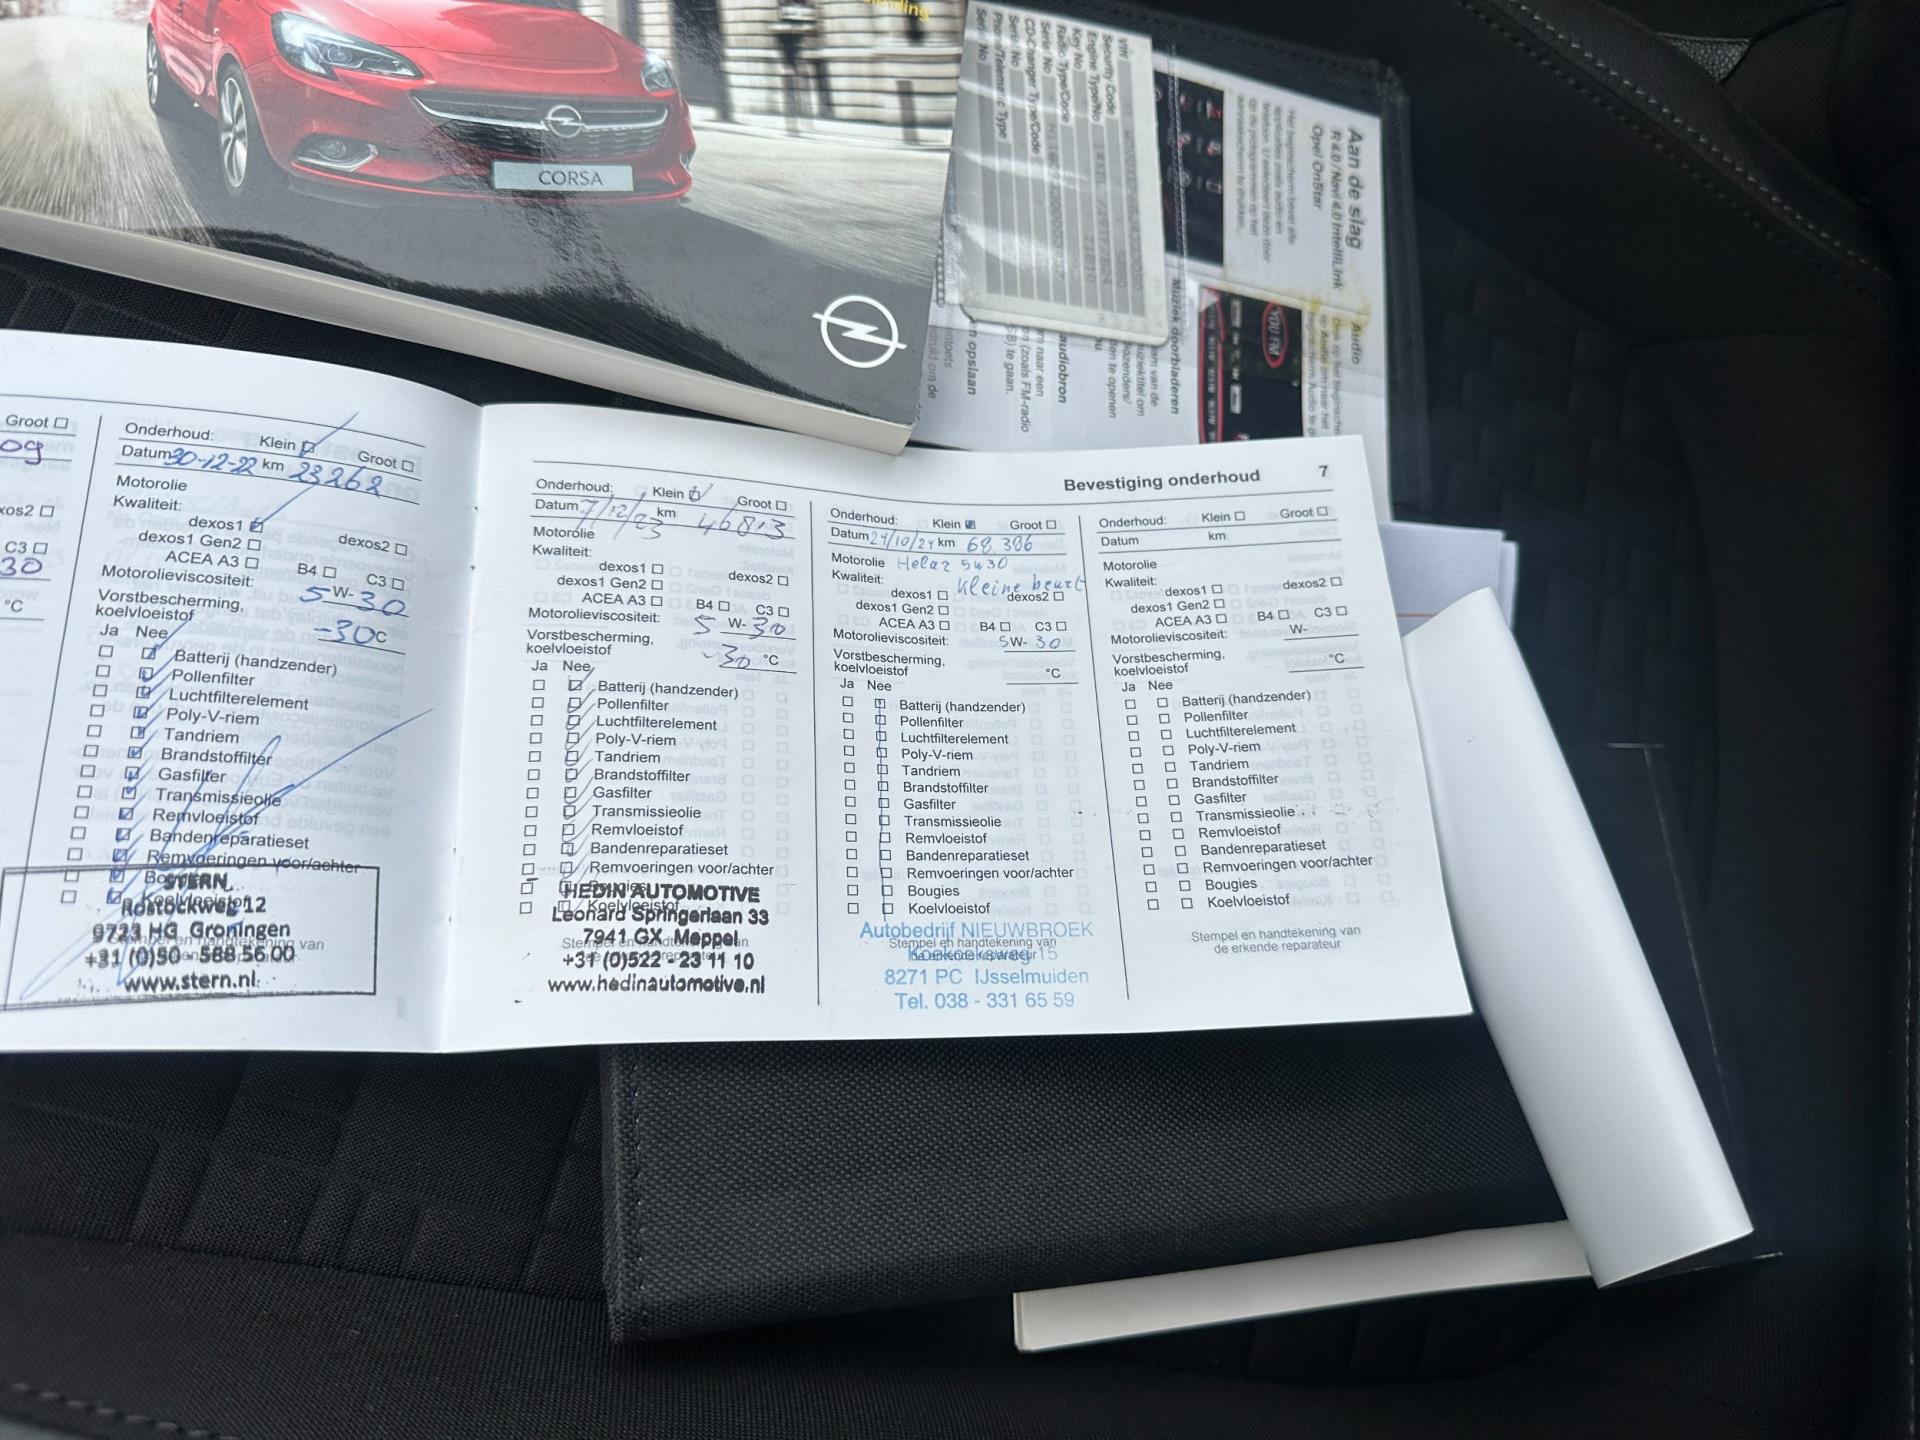 CORSA
VIN
Security Code
Engine Type/No
Key No
Radio Type/Code
Serie No
CD-Changer Type/Code
Serie No
Aan de slag
R 4.0 / Navi 4.0 IntelliLink
Opel OnStar
Audio
YOU FM
Muziek doorbladeren
audiobron
en opslaan
Groot
09
xos2
C3
30
°C
Onderhoud: Klein Groot
Datum 30-12-22 km 23262
Motorolie
Kwaliteit:
dexos1 dexos2
dexos1 Gen2
ACEA A3 B4 C3
Motorolieviscositeit: 5 W- 30
Vorstbescherming,
koelvloeistof -30 °C
Ja Nee
Batterij (handzender)
Pollenfilter
Luchtfilterelement
Poly-V-riem
Tandriem
Brandstoffilter
Gasfilter
Transmissieolie
Remvloeistof
Bandenreparatieset
Remvoeringen voor/achter
Koelvloeistof
STERN
Rostockweg 12
9723 HG Groningen
+31 (0)50 - 588 56 00
www.stern.nl
Bevestiging onderhoud 7
Onderhoud: Klein Groot
Datum 7/12/23 km 46813
Motorolie
Kwaliteit:
dexos1 dexos2
dexos1 Gen2
ACEA A3 B4 C3
Motorolieviscositeit: 5 W- 30
Vorstbescherming,
koelvloeistof -30 °C
Ja Nee
Batterij (handzender)
Pollenfilter
Luchtfilterelement
Poly-V-riem
Tandriem
Brandstoffilter
Gasfilter
Transmissieolie
Remvloeistof
Bandenreparatieset
Remvoeringen voor/achter
Bougies
Koelvloeistof
HEDIN AUTOMOTIVE
Leonard Springerlaan 33
7941 GX Meppel
+31 (0)522 - 23 11 10
www.hedinautomotive.nl
Onderhoud: Klein Groot
Datum 21/10/24 km 68.386
Motorolie Helar 5w30
Kwaliteit: Kleine beurt
dexos1 dexos2
dexos1 Gen2
ACEA A3 B4 C3
Motorolieviscositeit: 5 W- 30
Vorstbescherming,
koelvloeistof °C
Ja Nee
Batterij (handzender)
Pollenfilter
Luchtfilterelement
Poly-V-riem
Tandriem
Brandstoffilter
Gasfilter
Transmissieolie
Remvloeistof
Bandenreparatieset
Remvoeringen voor/achter
Bougies
Koelvloeistof
Autobedrijf NIEUWBROEK
Stempel en handtekening van
de erkende reparateur
8271 PC IJsselmuiden
Tel. 038 - 331 65 59
Onderhoud: Klein Groot
Datum km
Motorolie
Kwaliteit:
dexos1 dexos2
dexos1 Gen2
ACEA A3 B4 C3
Motorolieviscositeit: W-
Vorstbescherming,
koelvloeistof °C
Ja Nee
Batterij (handzender)
Pollenfilter
Luchtfilterelement
Poly-V-riem
Tandriem
Brandstoffilter
Gasfilter
Transmissieolie
Remvloeistof
Bandenreparatieset
Remvoeringen voor/achter
Bougies
Koelvloeistof
Stempel en handtekening van
de erkende reparateur